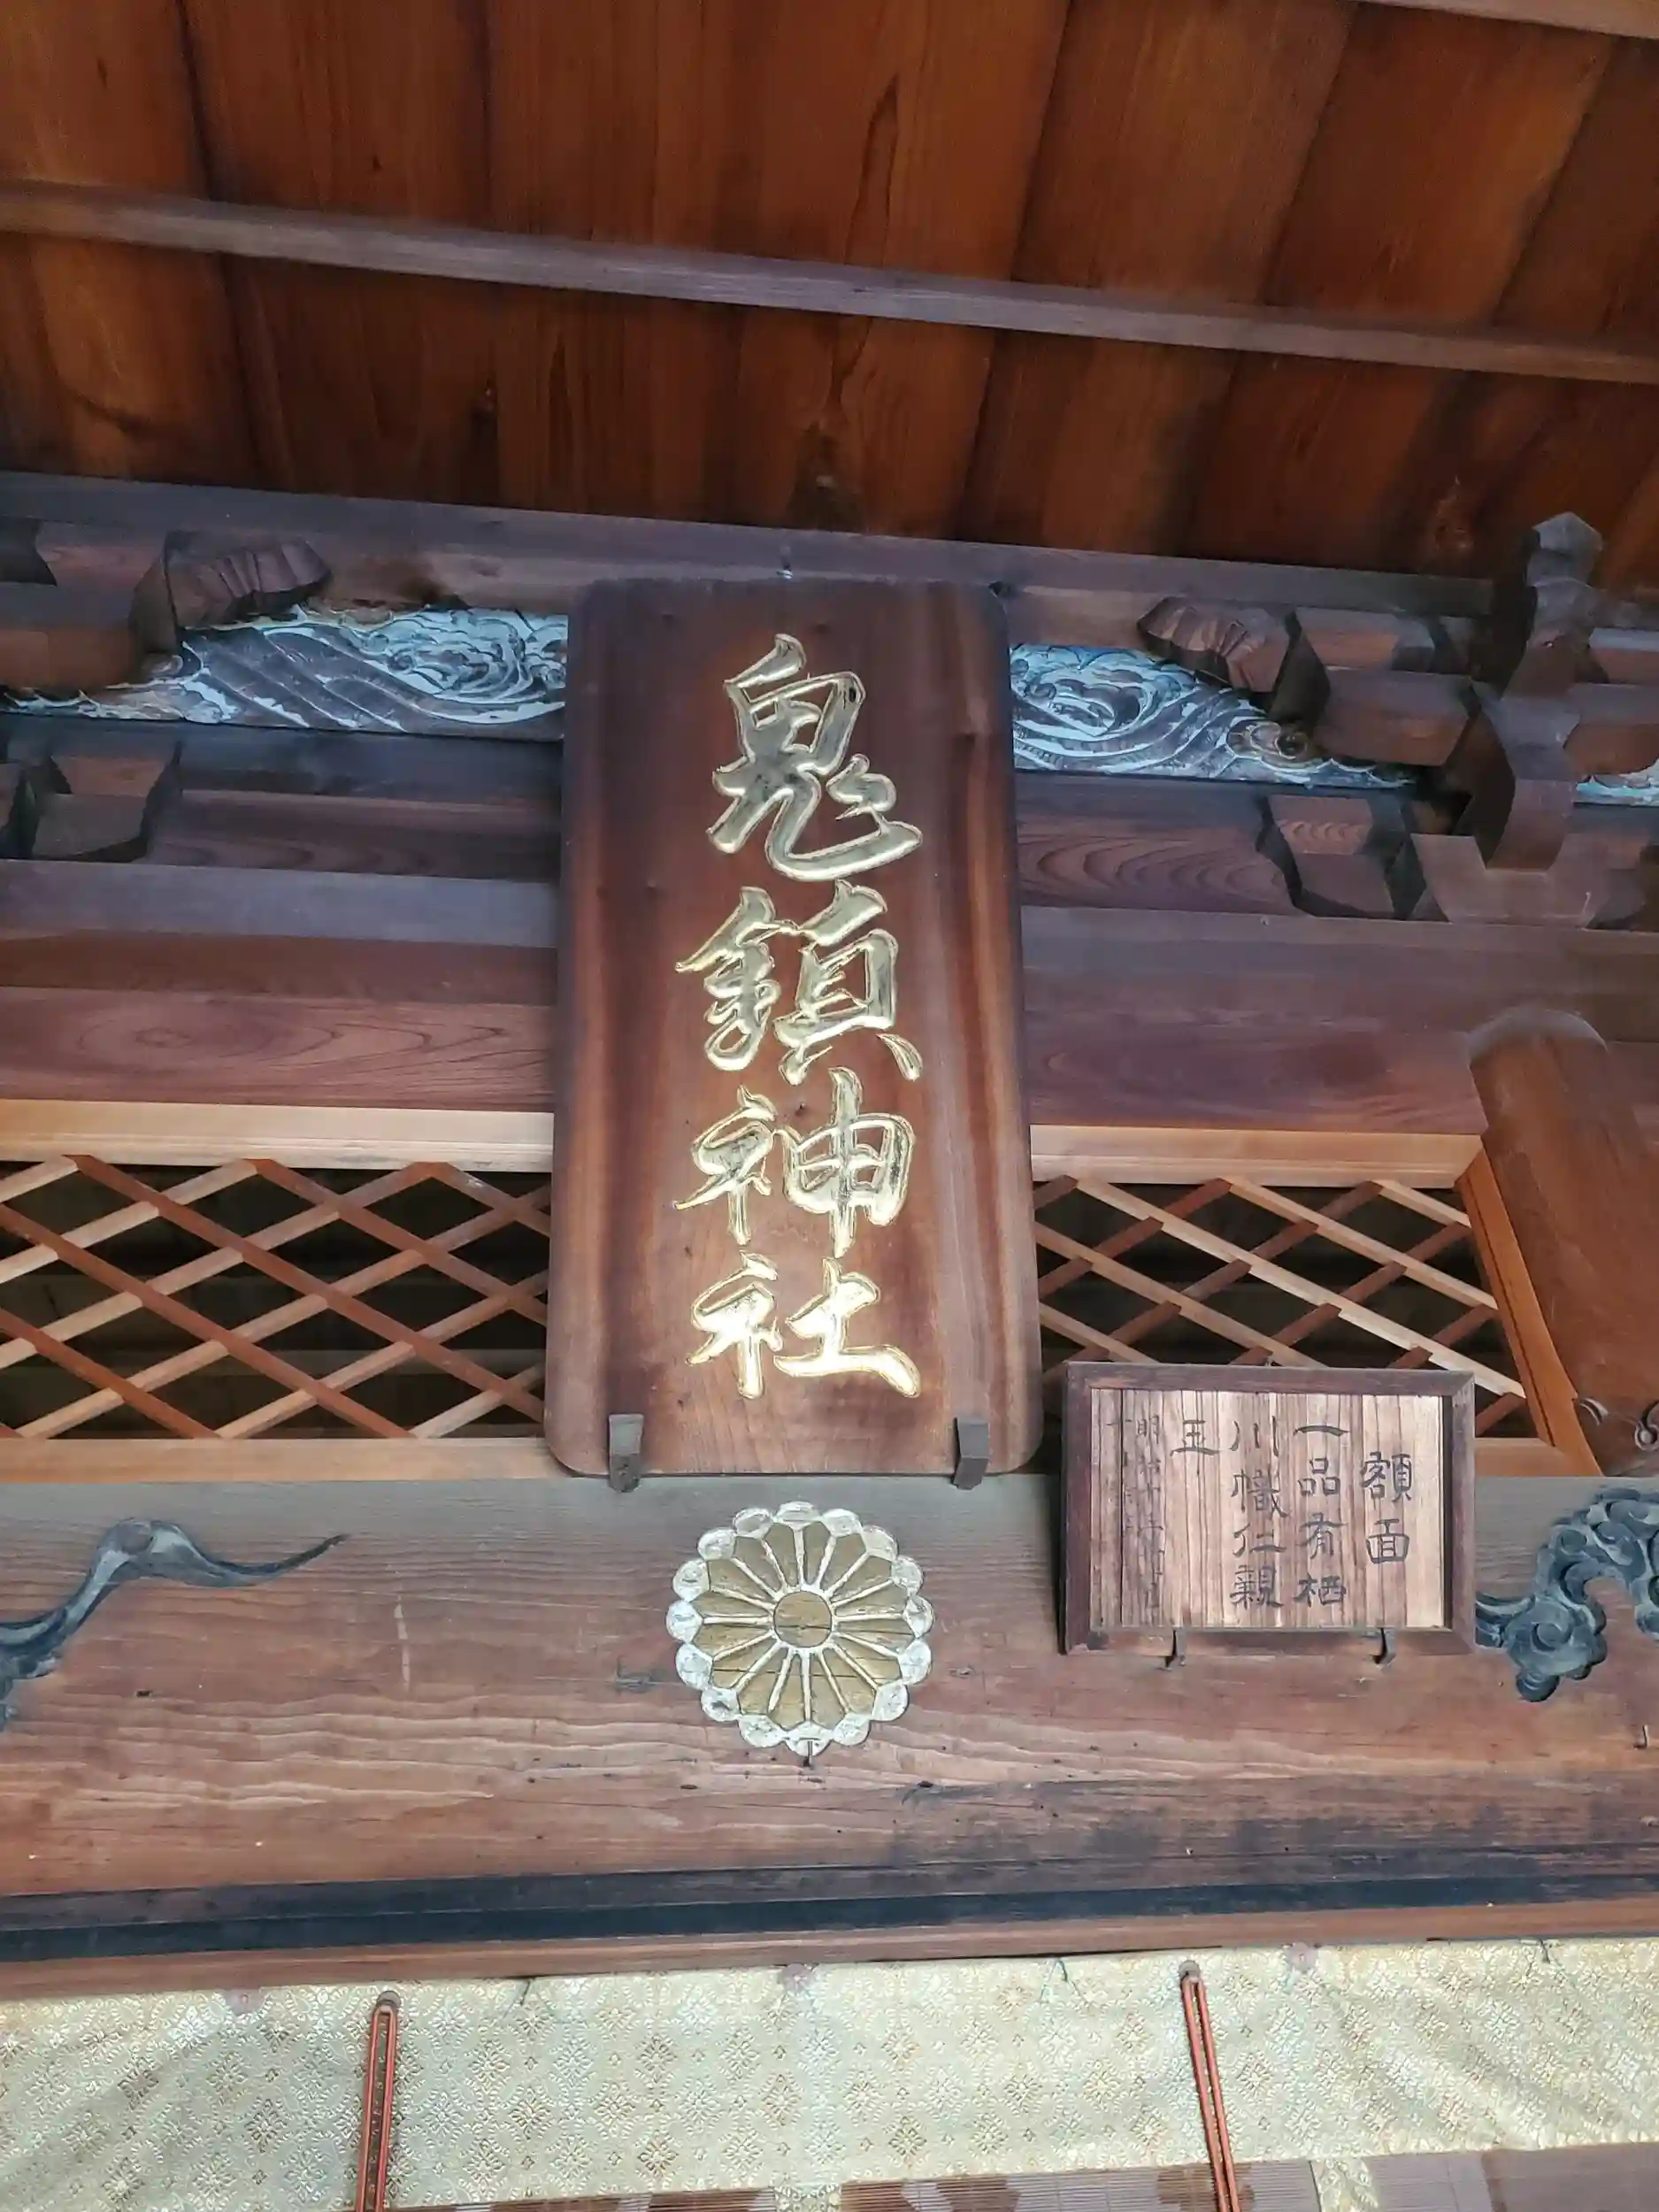 鬼鎮神社
額面
一品有栖
川幟仁親
王